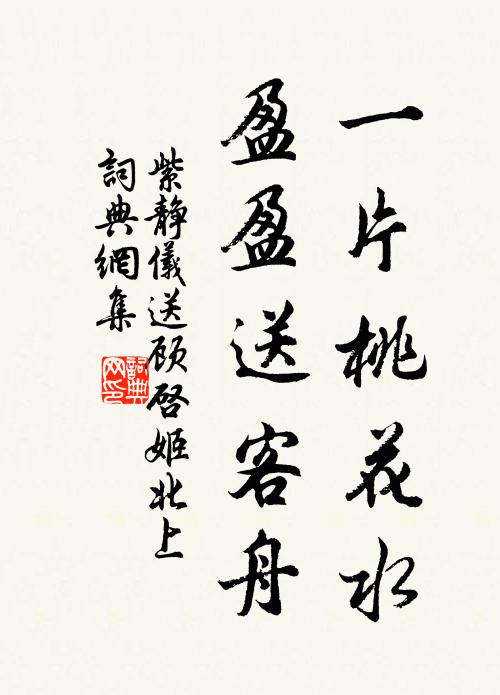 一片桃花水
盈盈送客舟
紫静儀送顾啓姬北上
詞典網集
詞典
网印